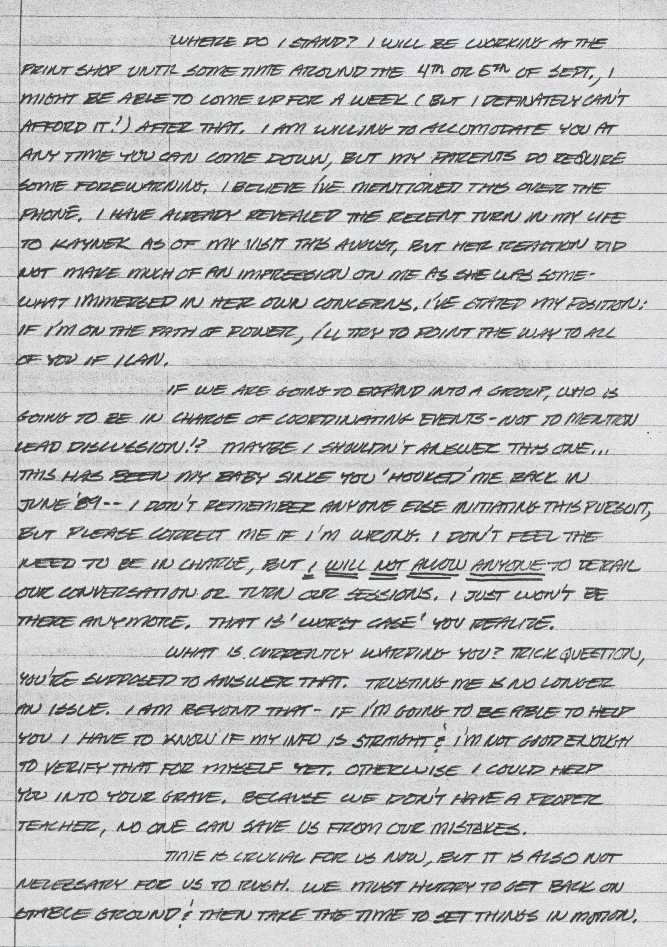 WHERE DO I STAND? I WILL BE WORKING AT THE
PRINT SHOP UNTIL SOMETIME AROUND THE 4TH OR 5TH OF SEPT., I
MIGHT BE ABLE TO COME UP FOR A WEEK (BUT I DEFINATELY CAN'T
AFFORD IT!) AFTER THAT. I AM WILLING TO ACCOMODATE YOU AT
ANY TIME YOU CAN COME DOWN, BUT MY PARENTS DO REQUIRE
SOME FOREWARNING. I BELIEVE I'VE MENTIONED THIS OVER THE
PHONE. I HAVE ALREADY REVEALED THE RECENT TURN IN MY LIFE
TO KAYNEK AS OF MY VISIT THIS AUGUST, BUT HER REACTION DID
NOT MAKE MUCH OF AN IMPRESSION ON ME AS SHE WAS SOME-
WHAT IMMERSED IN HER OWN CONCERNS. I'VE STATED MY POSITION:
IF I'M ON THE PATH OF POWER, I'LL TRY TO POINT THE WAY TO ALL
OF YOU IF I CAN.
IF WE ARE GOING TO EXPAND INTO A GROUP, WHO IS
GOING TO BE IN CHARGE OF COORDINATING EVENTS - NOT TO MENTION
LEAD DISCUSSION!? MAYBE I SHOULDN'T ANSWER THIS ONE...
THIS HAS BEEN MY BABY SINCE YOU 'HOOKED' ME BACK IN
JUNE '89 -- I DON'T REMEMBER ANYONE ELSE INITIATING THIS PURSUIT,
BUT PLEASE CORRECT ME IF I'M WRONG. I DON'T FEEL THE
NEED TO BE IN CHARGE, BUT I WILL NOT ALLOW ANYONE TO DERAIL
OUR CONVERSATION OR TURN OUR SESSIONS. I JUST WON'T BE
THERE ANYMORE. THAT IS 'WORST CASE' YOU REALIZE.
WHAT IS CURRENTLY WARDING YOU? TRICK QUESTION,
YOU'RE SUPPOSED TO ANSWER THAT. TRUSTING ME IS NO LONGER
AN ISSUE. I AM BEYOND THAT - IF I'M GOING TO BE ABLE TO HELP
YOU I HAVE TO KNOW IF MY INFO IS STRAIGHT & I'M NOT GOOD ENOUGH
TO VERIFY THAT FOR MYSELF YET. OTHERWISE I COULD HELP
YOU INTO YOUR GRAVE. BECAUSE WE DON'T HAVE A PROPER
TEACHER, NO ONE CAN SAVE US FROM OUR MISTAKES.
TIME IS CRUCIAL FOR US NOW, BUT IT IS ALSO NOT
NECESSARY FOR US TO RUSH. WE MUST HURRY TO GET BACK ON
STABLE GROUND & THEN TAKE THE TIME TO SET THINGS IN MOTION.